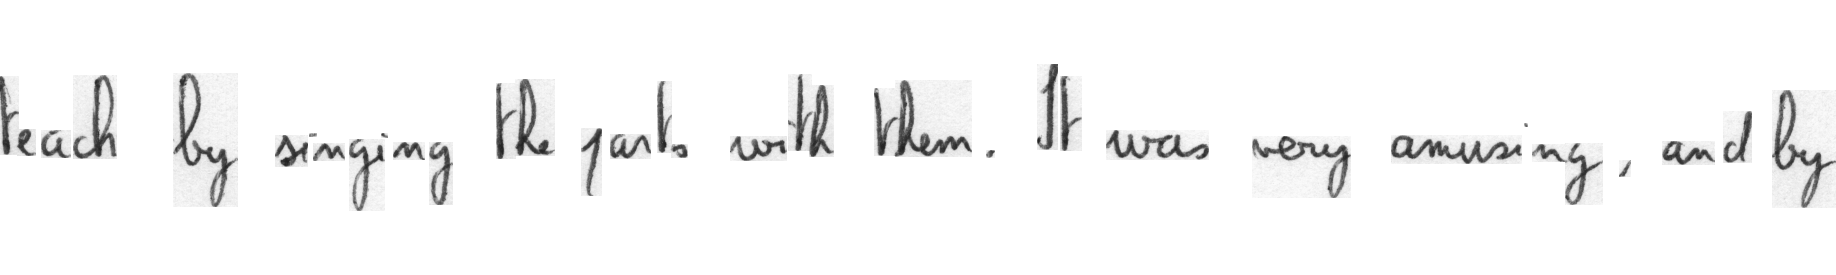 teach by singing the parts with them. It was very amusing, and by